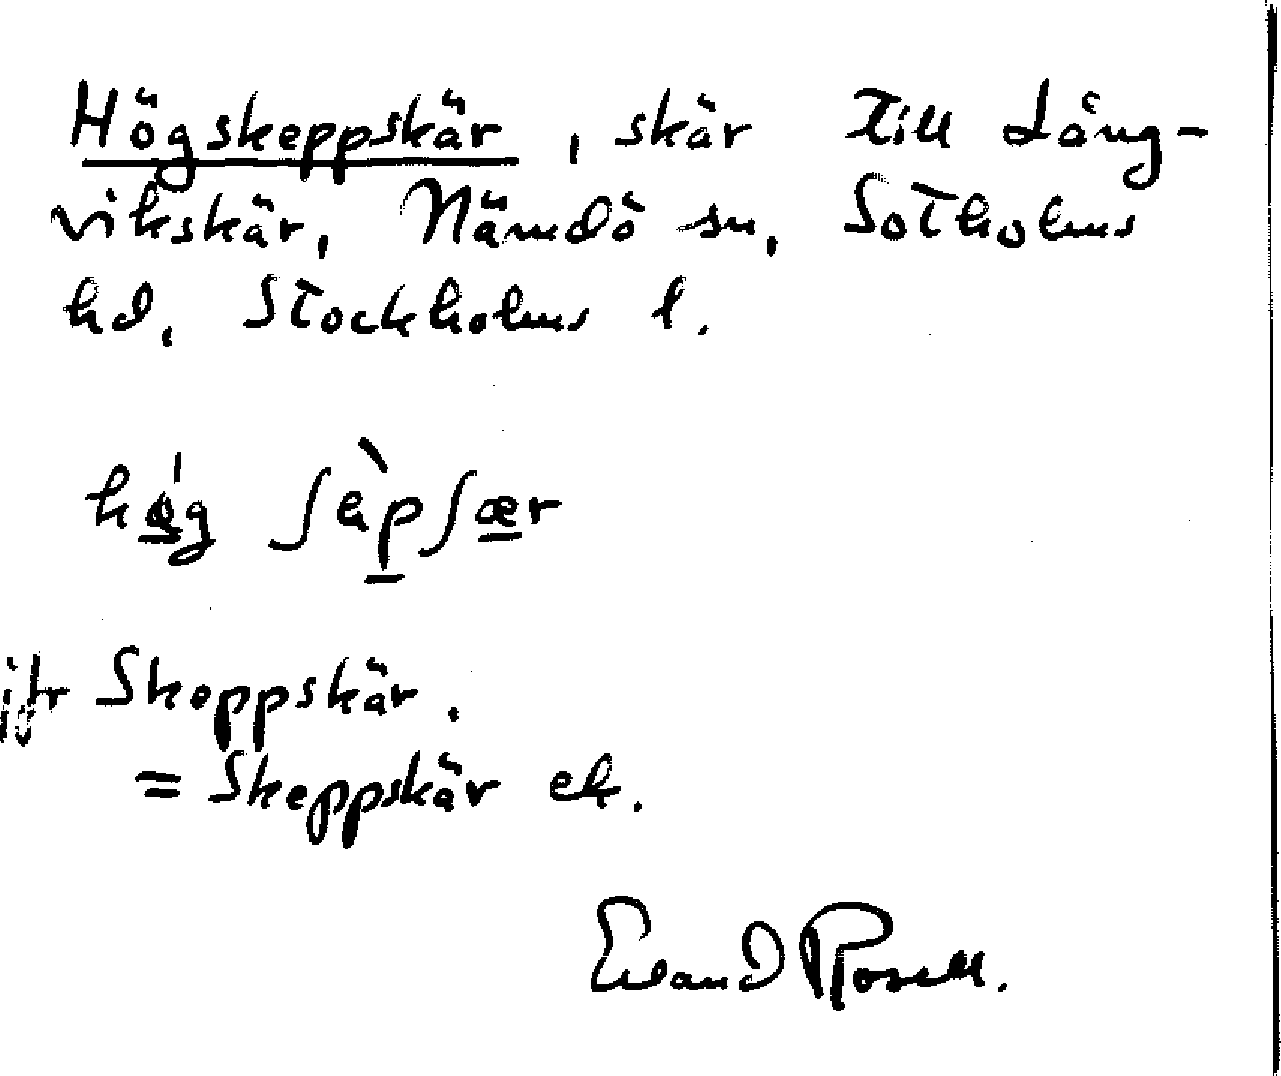 Högskeppskär, skär till Lång-
vikskär, Nämdö sn, Sotholms
hd, Stockholms l.
hǿg ʃèpʃær
jfr Skeppskär.
= Skeppskär ek.
Erland Rosell.